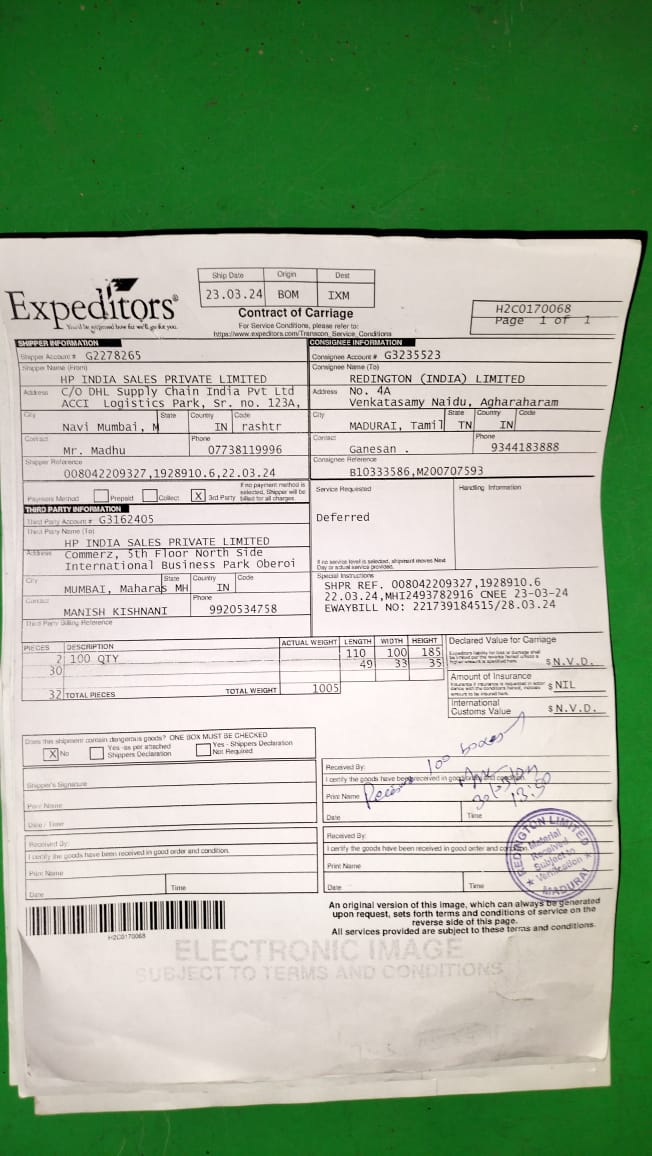 Expeditors®
You'd be surprised how far we'll go for you.
Ship Date Origin Dest
23.03.24 BOM IXM
Contract of Carriage
For Service Conditions, please refer to:
https://www.expeditors.com/Transcon_Service_Conditions
H2C0170068
Page 1 of 1
SHIPPER INFORMATION
Shipper Account # G2278265
Shipper Name (From)
HP INDIA SALES PRIVATE LIMITED
Address C/O DHL Supply Chain India Pvt Ltd
ACCI Logistics Park, Sr. no. 123A,
City State Country Code
Navi Mumbai, M IN rashtr
Contact Phone
Mr. Madhu 07738119996
Shipper Reference
008042209327,1928910.6,22.03.24
CONSIGNEE INFORMATION
Consignee Account # G3235523
Consignee Name (To)
REDINGTON (INDIA) LIMITED
Address No. 4A
Venkatasamy Naidu, Agharaharam
City State Country Code
MADURAI, Tamil TN IN
Contact Phone
Ganesan . 9344183888
Consignee Reference
B10333586,M200707593
Payment Method Prepaid Collect X 3rd Party
If no payment method is
selected, Shipper will be
billed for all charges.
THIRD PARTY INFORMATION
Third Party Account # G3162405
Third Party Name (To)
HP INDIA SALES PRIVATE LIMITED
Address Commerz, 5th Floor North Side
International Business Park Oberoi
City State Country Code
MUMBAI, Maharas MH IN
Contact Phone
MANISH KISHNANI 9920534758
Third Party Billing Reference
Service Requested Handling Information
Deferred
If no service level is selected, shipment moves Next
Day or actual service provided.
Special Instructions
SHPR REF. 008042209327,1928910.6
22.03.24,MHI2493782916 CNEE 23-03-24
EWAYBILL NO: 221739184515/28.03.24
PIECES DESCRIPTION ACTUAL WEIGHT LENGTH WIDTH HEIGHT
2 100 QTY 110 100 185
30 49 33 35
32 TOTAL PIECES TOTAL WEIGHT 1005
Declared Value for Carriage
$ N.V.D.
Amount of Insurance
$ NIL
International
Customs Value $ N.V.D.
Does this shipment contain dangerous goods? ONE BOX MUST BE CHECKED
X No Yes - as per attached Shippers Declaration Yes - Shippers Declaration Not Required
Shipper's Signature
Print Name
Date / Time
Received By:
I certify the goods have been received in good order and condition.
Print Name
Date Time
Received By:
100 boxes
I certify the goods have been received in good order and condition.
Print Name
30/03/24
13:50
Date Time
Received By:
I certify the goods have been received in good order and condition.
Print Name
Date Time
REDINGTON LIMITED
Material
Received
Subject to
Verification
★ MADURAI ★
H2C0170068
An original version of this image, which can always be generated
upon request, sets forth terms and conditions of service on the
reverse side of this page.
All services provided are subject to these terms and conditions.
ELECTRONIC IMAGE
SUBJECT TO TERMS AND CONDITIONS